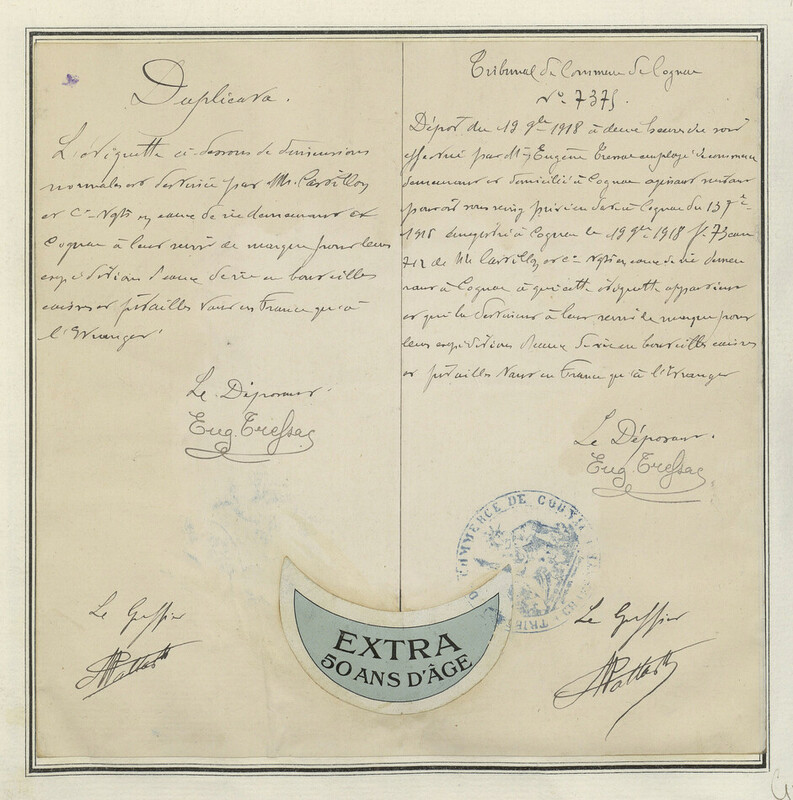 Duplicata.
L'étiquette ci-dessous de dimensions
normales est destinée par MM. Castillon
et Cie Ngts en eaux de vie demeurant à
Cognac à leur servir de marque pour leurs
expéditions d'eaux de vie en bouteilles
caisses et futailles tant en France qu'à
l'Etranger
Le Déposant.
Eug. Tressac
Le Greffier
Tribunal de Commerce de Cognac
No 7375.
Dépôt du 19 9bre 1918 à deux heures du soir
effectué par Mr Eugène Tressac employé de commerce
demeurant et domicilié à Cognac agissant
pouvoir sous seing privé en date à Cognac du 13
enregistré à Cognac le 19 9bre 1918 f. 73
de MM Castillon et Cie Ngts en eaux de vie demeu
rant à Cognac à qui cette étiquette appartient
et qui la destinent à leur servir de marque pour
leurs expéditions d'eaux de vie en bouteilles caisses
et futailles tant en France qu'à l'étranger
Le Déposant.
Eug. Tressac
COMMERCE DE COGNAC
TRIB
Le Greffier
EXTRA
50 ANS D'ÂGE